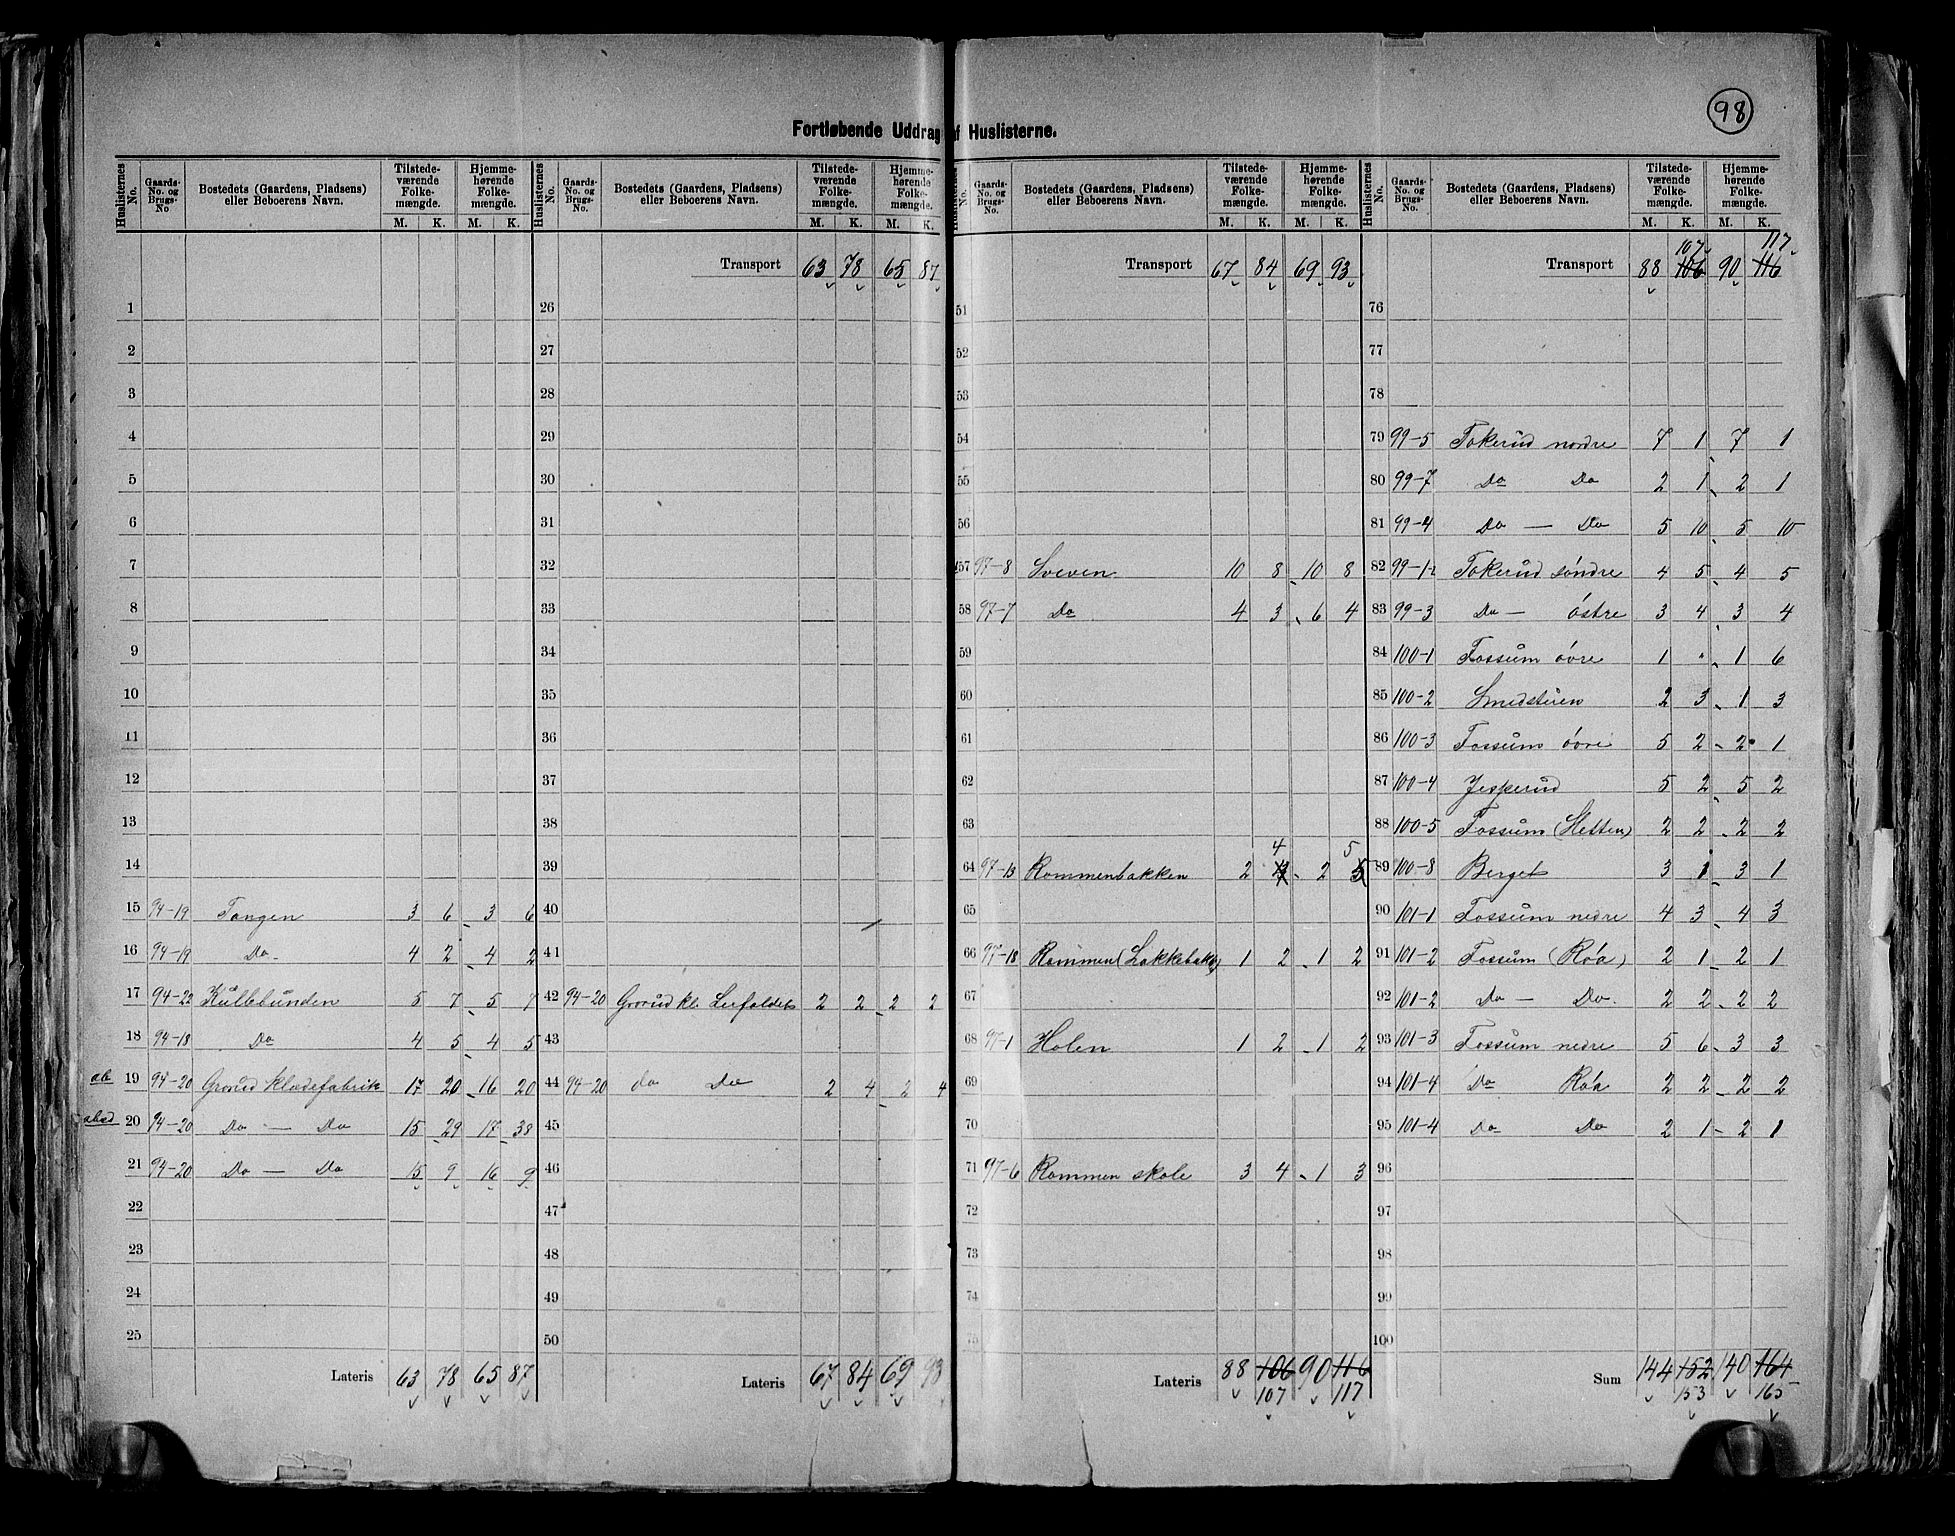 98
Fortløbende Uddrag af Huslisterne.
Huslisternes No. Gaards-No. og Brugs-No. Bostedets (Gaardens, Pladsens) eller Beboerens Navn. Tilstedeværende Folkemængde. M. K. Hjemmehørende Folkemængde. M. K.
1
2
3
4
5
6
7
8
9
10
11
12
13
14
15 94-19 Tangen 3 6 3 6
16 94-19 Do. 4 2 4 2
17 94-22 Kullebunden 5 7 5 7
18 94-18 Do 4 5 4 5
ab 19 94-20 Grorud Klædefabrik 17 20 16 20
abcd 20 94-20 Do — Do 15 29 17 38
21 94-20 Do — Do 15 9 16 9
22
23
24
25
Lateris 63 78 65 87
Huslisternes No. Gaards-No. og Brugs-No. Bostedets (Gaardens, Pladsens) eller Beboerens Navn. Tilstedeværende Folkemængde. M. K. Hjemmehørende Folkemængde. M. K.
Transport 63 78 65 87
26
27
28
29
30
31
32
33
34
35
36
37
38
39
40
41
42 94-20 Grorud kl. 2 2 2 2
43
44 94-20 do Do 2 4 2 4
45
46
47
48
49
50
Lateris 67 84 69 93
Huslisternes No. Gaards-No. og Brugs-No. Bostedets (Gaardens, Pladsens) eller Beboerens Navn. Tilstedeværende Folkemængde. M. K. Hjemmehørende Folkemængde. M. K.
Transport 67 84 69 93
51
52
53
54
55
56
57 97-8 Sveven 10 8 10 8
58 97-7 Do 4 3 6 4
59
60
61
62
63
4 5
64 97-13 Rommenbakken 2 2 5
65
66 97-18 Rommen (Lakkebakk) 1 2 1 2
67
68 97-1 Holen 1 2 1 2
69
70
71 97-6 Rommen skole 3 4 1 3
72
73
74
75
Lateris 88 106 90 116
107 117
Huslisternes No. Gaards-No. og Brugs-No. Bostedets (Gaardens, Pladsens) eller Beboerens Navn. Tilstedeværende Folkemængde. M. K. Hjemmehørende Folkemængde. M. K.
107 117
Transport 88 106 90 116
76
77
78
79 99-5 Tokerud nordre 7 1 7 1
80 99-7 Do Do 2 1 2 1
81 99-4 Do — Do 5 10 5 10
82 99-1-2 Tokerud søndre 4 5 4 5
83 99-3 Do — østre 3 4 3 4
84 100-1 Fossum øvre 1 " 1 6
85 100-2 Smedstuen 2 3 1 3
86 100-3 Fossum øvre 5 2 2 1
87 100-4 Jesperud 5 2 5 2
88 100-5 Fossum (Stetten) 2 2 2 2
89 100-8 Berget 3 1 3 1
90 101-1 Fossum nedre 4 3 4 3
91 101-2 Fossum (Røa) 2 1 2 1
92 101-2 Do — Do. 2 2 2 2
93 101-3 Fossum nedre 5 6 3 3
94 101-4 Do Røa 2 2 2 2
95 101-4 Do Do 2 1 2 1
96
97
98
99
100
Sum 144 152 140 164
153 165